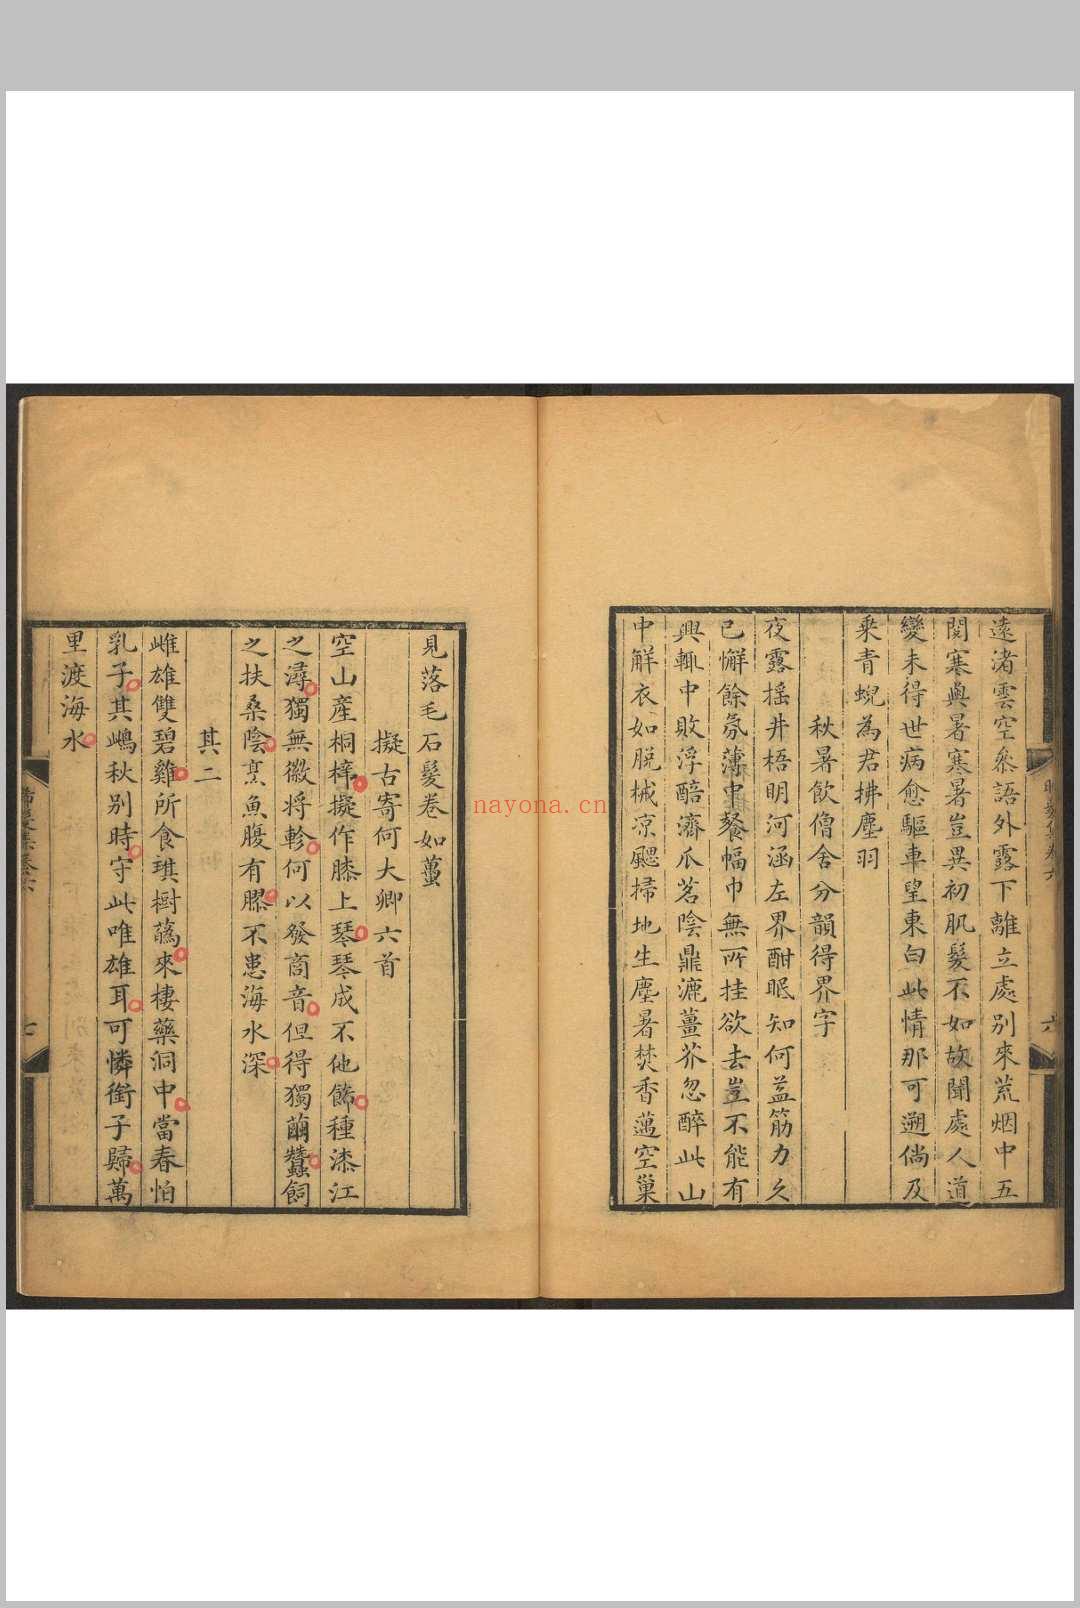 遠渚雲空叅語外露下離立處別來荒烟中五
閱寒與暑寒暑豈異初肌髮不如故聞處人道
變未得世病愈驅車望東白此情那可遡倘及
乗青蜺為君拂塵羽
秋暑飲僧舍分韻得界字
夜露揺井梧明河涵左界酣眠知何益筋力久
已懈餘氛薄中餐幅巾無所挂欲去豈不能有
興輒中敗浮醅濟瓜茗陰鼎漉薑芥忽醉此山
中解衣如脫械凉颸掃地生塵暑焚香邁空巢
見落毛石髮卷如蠆
擬古寄何大卿六首
空山産桐梓擬作膝上琴琴成不他飾種漆江
之潯獨無徽將軫何以發商音但得獨繭蠶飼
之扶桑陰烹魚腹有膠不患海水深
其二
雌雄雙碧雞所食琪樹蘤來棲藥洞中當春怕
乳子其鴂秋別時守此唯雄耳可憐銜子歸萬
里渡海水
晞髮集卷六
六
七
nayona.cn